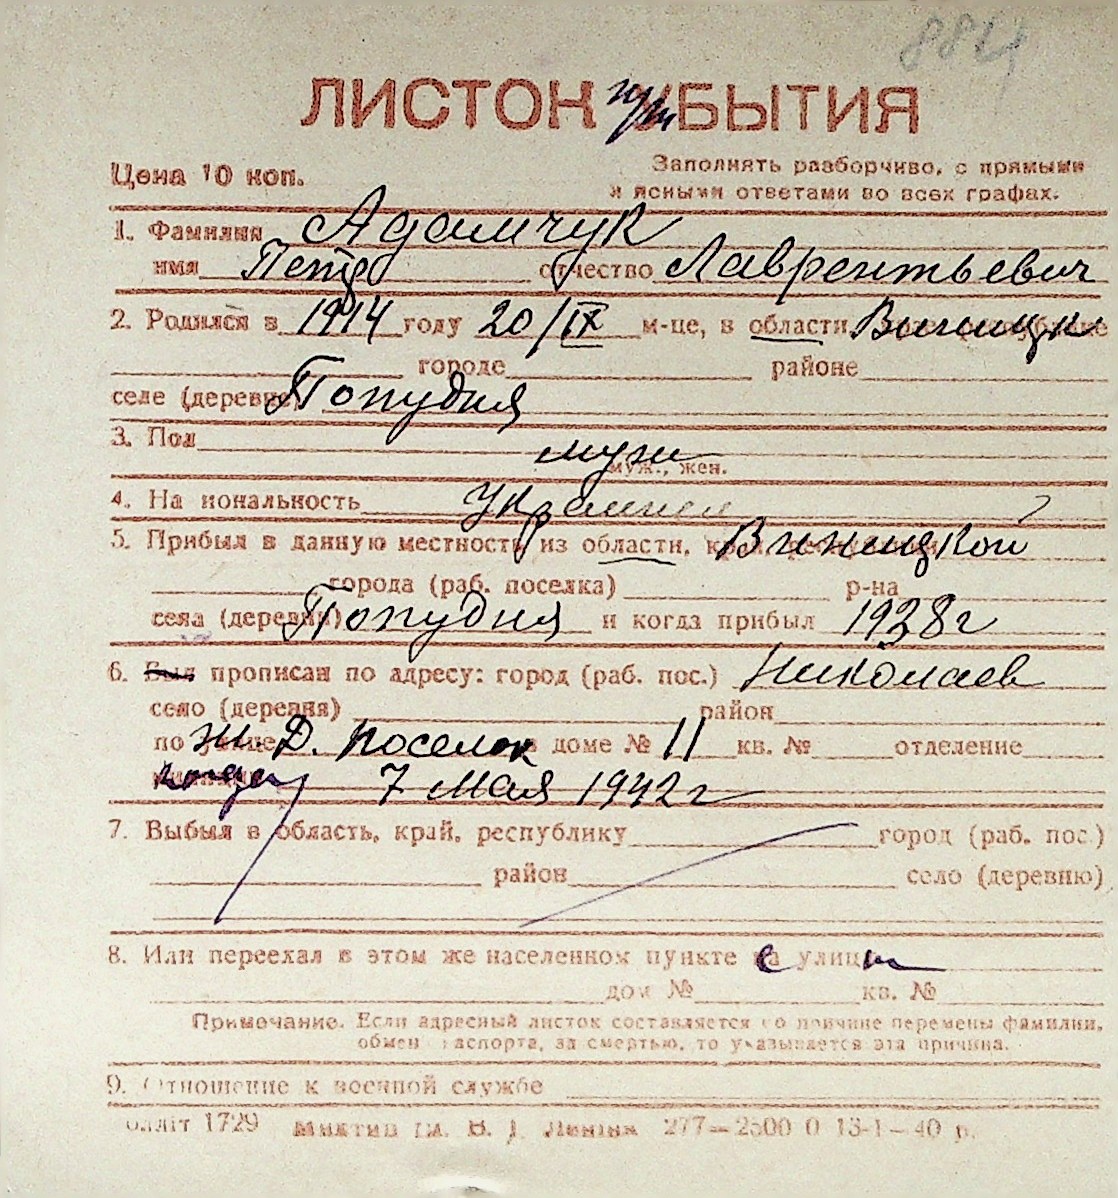 884
ЛИСТОК прБЫТИЯ
Цена 10 коп.
Заполнять разборчиво, с прямыми
и ясными ответами во всех графах.
1. Фамилия Адамчук
имя Петр отчество Лаврентьевич
2. Родился в 1914 году 20/IX м-це, в области, Виницк
городе районе
селе (деревне) Попудня
3. Пол муж
муж., жен.
4. Национальность Украинец
5. Прибыл в данную местность из области, Виницкой
города (раб. поселка) р-на
села (деревни) Попудня и когда прибыл 1938г
6. Был прописан по адресу: город (раб. пос.) Николаев
село (деревня) район
по улице Ж. Д. поселок в доме № 11 кв. № отделение
когда 7 мая 1942г
7. Выбыл в область, край, республику город (раб. пос.)
район село (деревню)
8. Или переехал в этом же населенном пункте с улицы
дом № кв. №
Примечание. Если адресный листок составляется по причине перемены фамилии,
обмен паспорта, за смертью, то указывается эта причина.
9. Отношение к военной службе
Облліт 1729 ім. В. І. Леніна 277—2500 0 13-1-40 р.